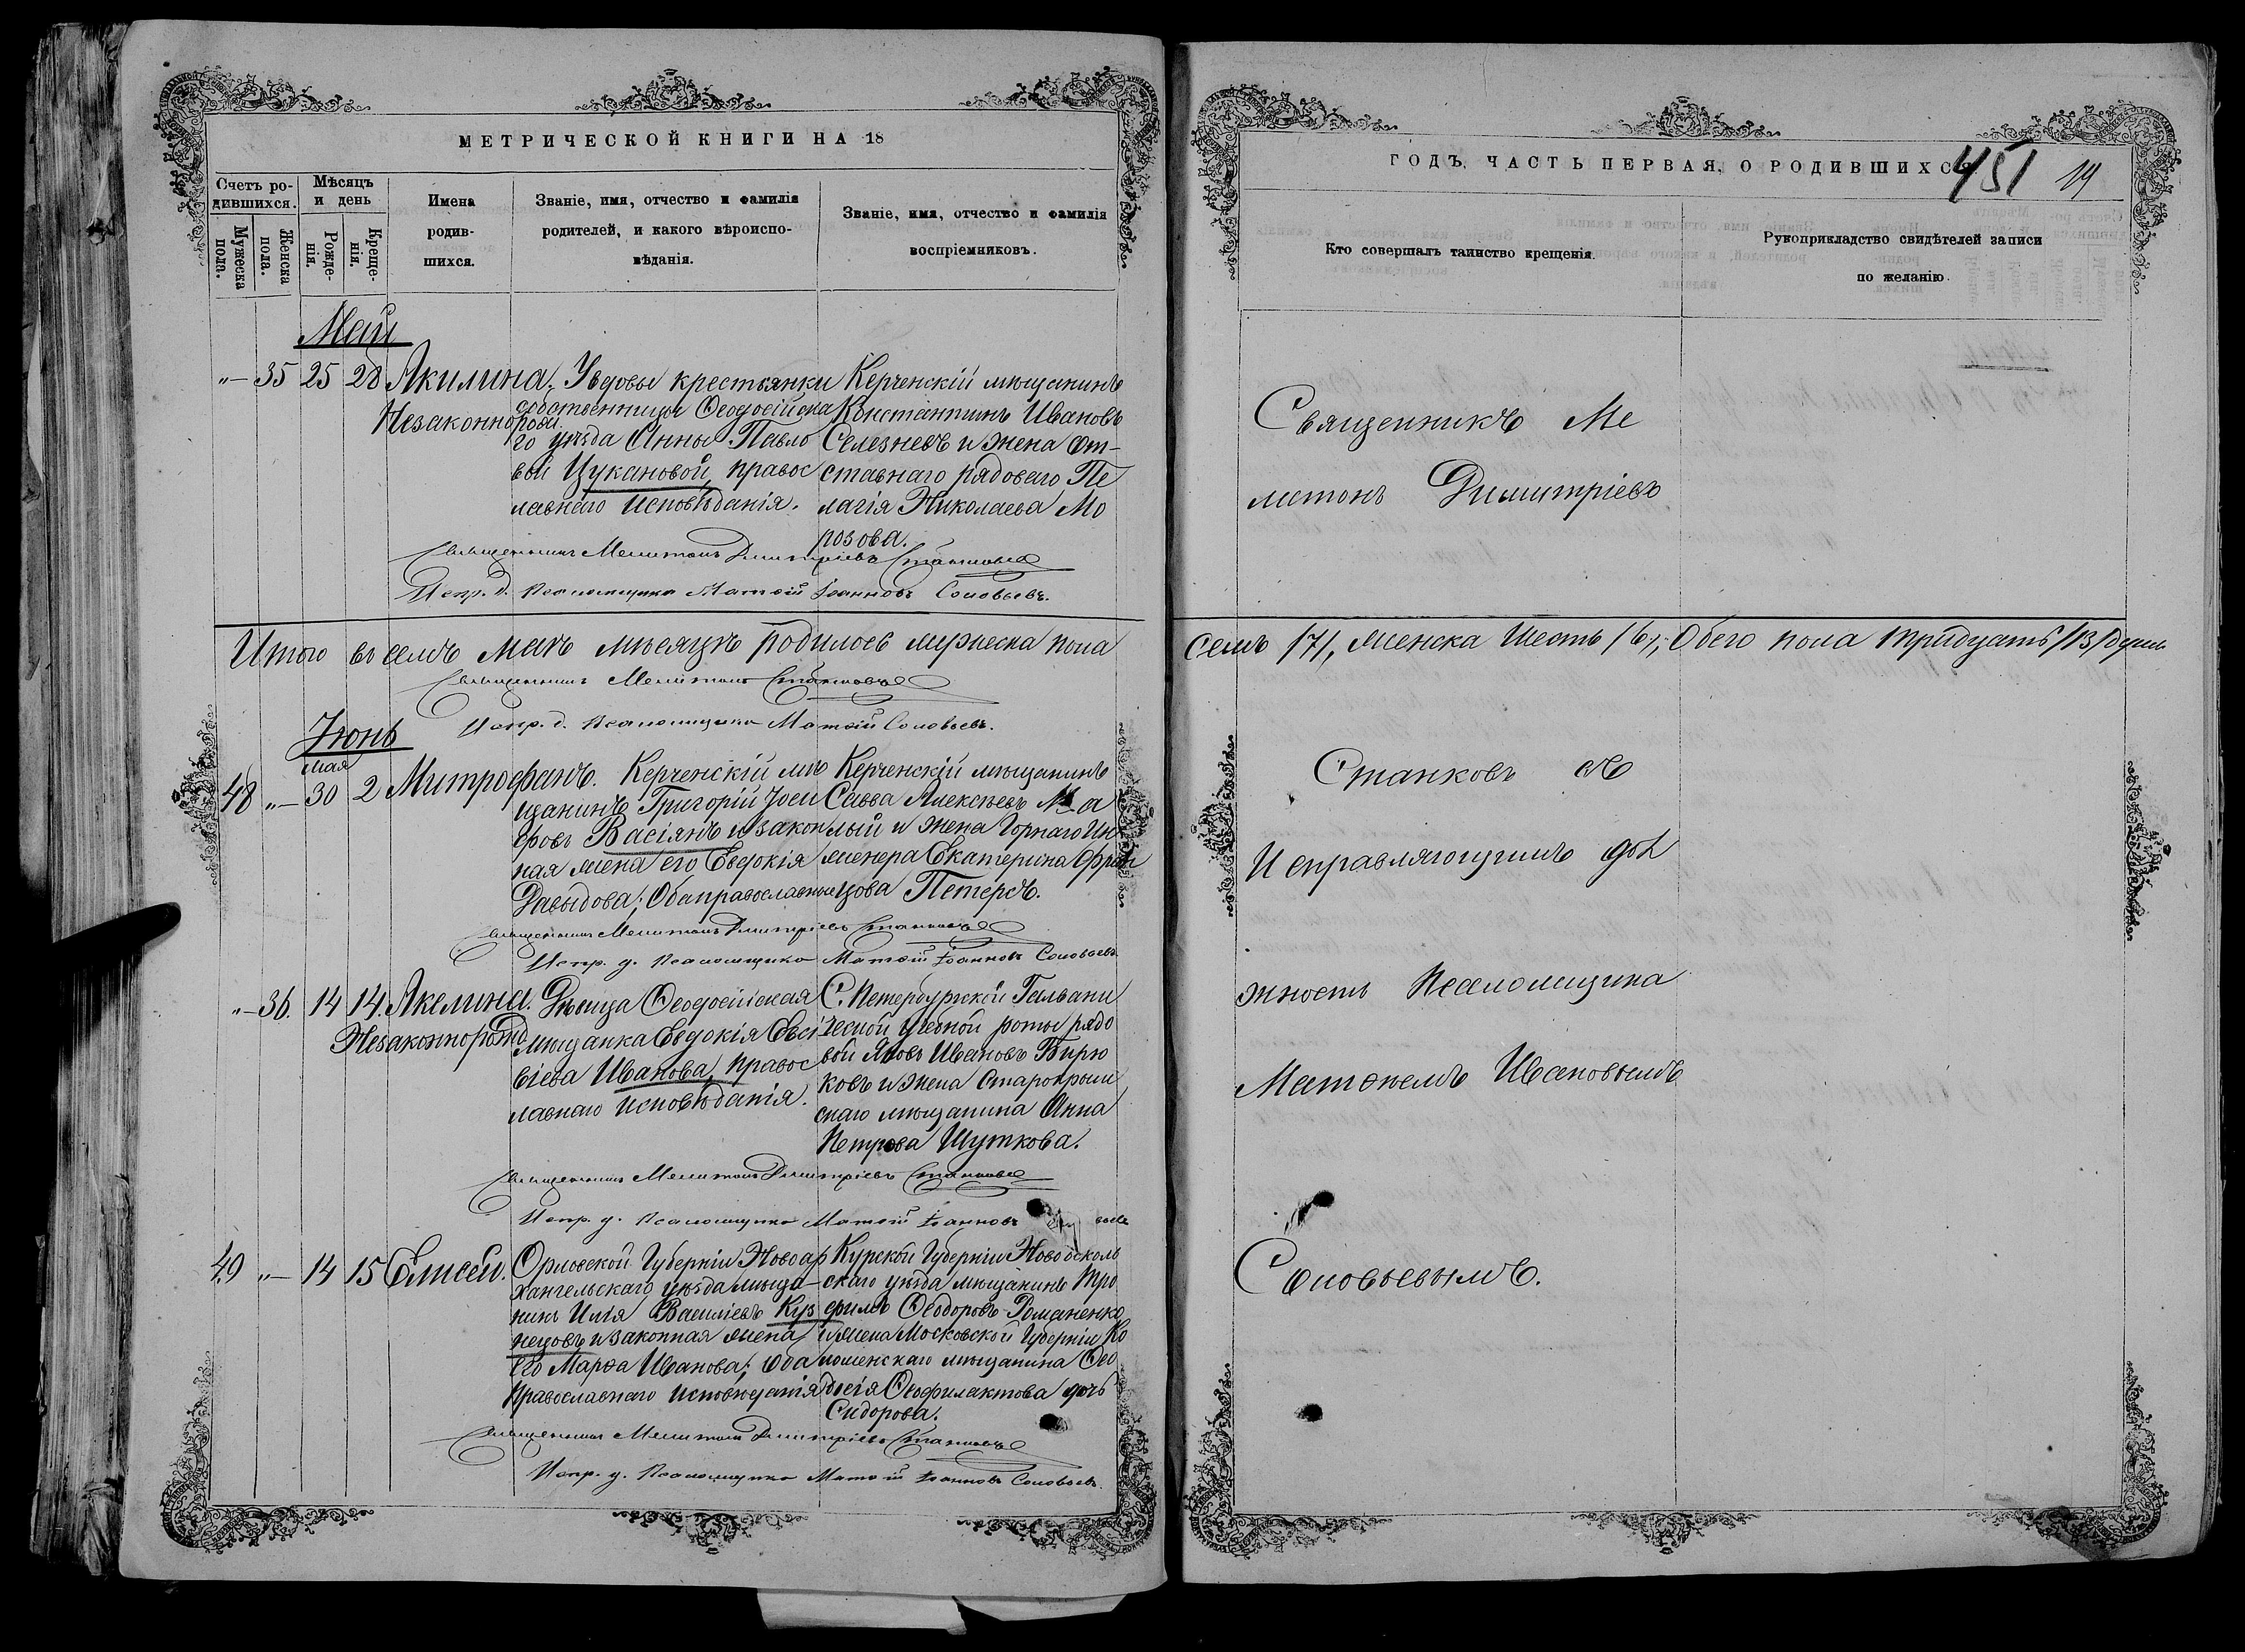 МЕТРИЧЕСКОЙ КНИГИ НА 18
Счетъ ро-
дившихся.
Мужеска
пола.
Женска
пола.
Мѣсяцъ
и день
Рожде-
нія.
Креще-
нія.
Имена
родив-
шихся.
Званіе, имя, отчество и фамилія
родителей, и какого вѣроиспо-
вѣданія.
Званіе, имя, отчество и фамилія
воспріемниковъ.
Май
"— 35 25 28 Акилина.
Незаконнорожд.
У вдовы крестьянки
собственницы Ѳеодосійска
го уѣзда Анны Павло
вой Цукановой, правос
лавнаго исповѣданія.
Керченскій мѣщанинъ
Константинъ Ивановъ
Селезневъ и жена от-
ставнаго рядоваго Пе
лагія Николаева Мо
розова.
Священникъ Мелитонъ Димитріевъ Станковъ
Испр. д. Псаломщика Матѳій Іоанновъ Соловьевъ.
Итого въ семъ маѣ мѣсяцѣ родилось мужеска пола
Священникъ Мелитонъ Станковъ
Испр. д. Псаломщика Матѳій Соловьевъ.
Іюнь
мая
48 "— 30 2 Митрофанъ.
Керченскій мѣ
щанинъ Григорій Іоси
фовъ Васіянъ и закон
ная жена его Евдокія
Давыдова; Оба православные
Керченскій мѣщанинъ
Савва Алексѣевъ Ма
лый и жена Горнаго Ин
женера Екатерина Фран
цова Петерсъ.
Священникъ Мелитонъ Димитріевъ Станковъ
Испр. д. Псаломщика Матѳій Іоанновъ Соловьевъ
"— 36. 14 14. Акелина.
Незаконнорожд
Дѣвица Ѳеодосійская
мѣщанка Евдокія Евсі
віева Иванова, правос
лавнаго исповѣданія.
С. Петербуржской Гальвани
ческой учебной роты рядо
вой Яковъ Ивановъ Бирю
ковъ и жена Старокрым
скаго мѣщанина Анна
Петрова Шуткова.
Священникъ Мелитонъ Димитріевъ Станковъ
Испр. д. Псаломщика Матѳій Іоанновъ
49 "— 14 15 Елисей.
Орловской Губерніи Новоар
хангельскаго уѣзда мѣща-
нинъ Илія Васильевъ Куз
нецовъ и законная жена
его Марѳа Иванова; оба
православнаго исповѣданія
Курской Губерніи Новооскол
скаго уѣзда мѣщанинъ Тро
фимъ Ѳеодоровъ Романенко
и жена Московской Губерніи Ко
ломенскаго мѣщанина Ѳео
досія Ѳеофилактова дочь
Сидорова.
Священникъ Мелитонъ Димитріевъ Станковъ
Испр. д. Псаломщика Матѳій Іоанновъ Соловьевъ.
ГОДЪ. ЧАСТЬ ПЕРВАЯ, О РОДИВШИХСЯ
451 19
Кто совершалъ таинство крещенія.
Рукоприкладство свидѣтелей записи
по желанію.
Священникъ Ме
литонъ Димитріевъ
семь /7/, женска шесть /6/; Обего пола тринадцать /13/ душъ
Станковъ съ
Исправляющимъ дол
жность Псаломщика
Матѳеемъ Ивановымъ
Соловьевымъ.